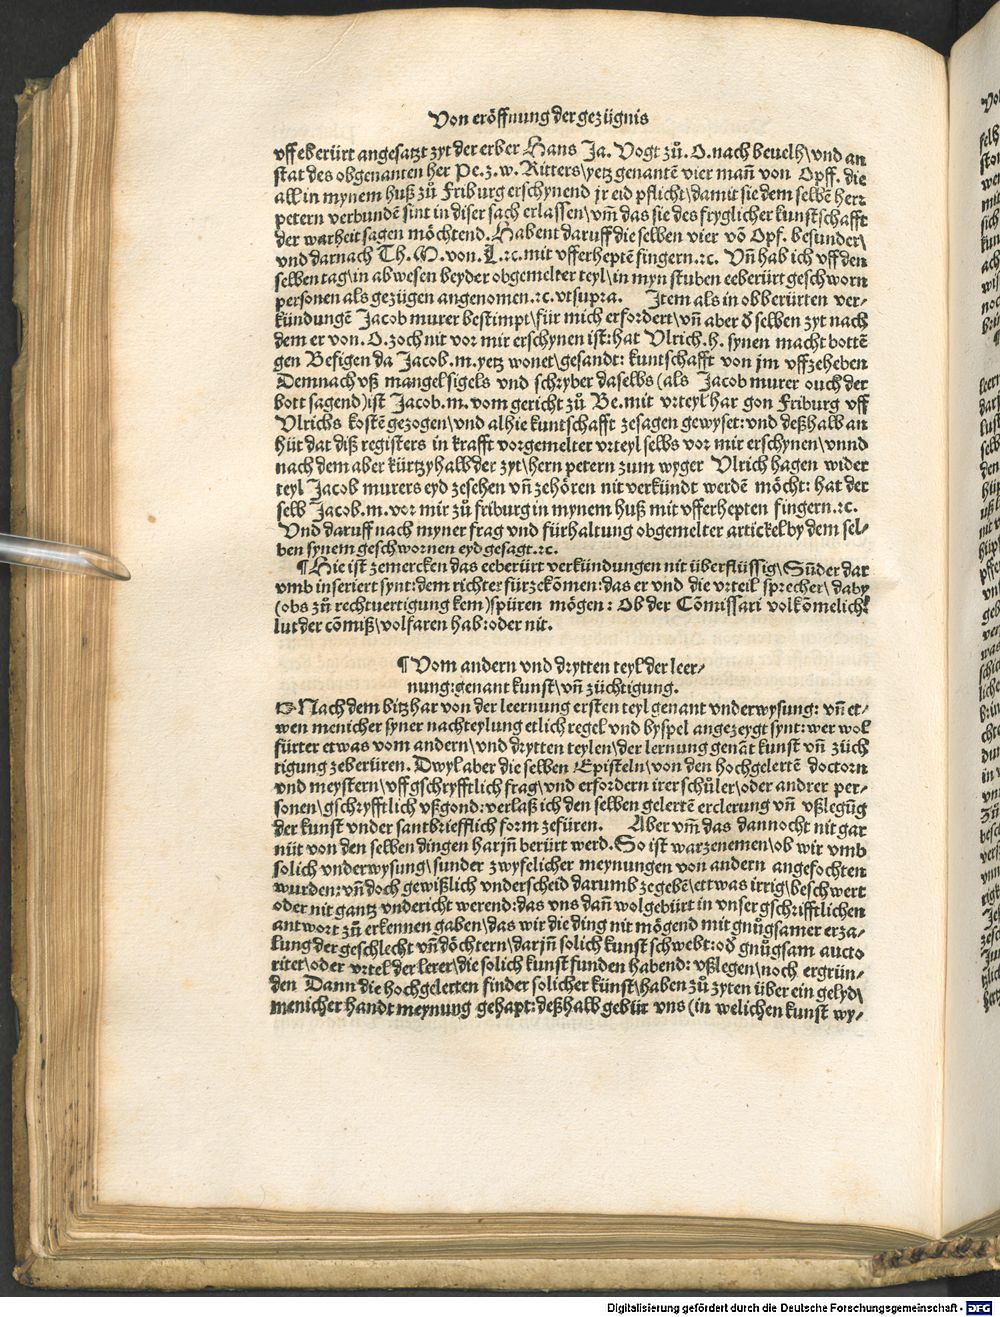 Von eröffnung der gezügnis
vff eberürt angesatzt zyt der erber Hans Ja. Vogt zů. O. nach beuelh\ vnd an
stat des obgenanten her Pe. z. w. Ritters\ yetz genantē vier man̄ von Opff. die
all in mynem huß zů Friburg erschynend jr eid pflicht\ damit sie dem selbē herr
petern verbundē sint in diser sach erlassen\ vm̄ das sie des fryglicher kunstschafft
der warheit sagen möchtend. Habent daruff die selben vier vō Opf. besunder\
vnd darnach Th. M. von. L. ⁊c. mit vfferheptē fingern. ⁊c. Vn̄ hab ich vff den
selben tag\ in abwesen beyder obgemelter teyl\ in myn stuben eeberürt geschworn
personen als gezügen angenomen. ⁊c. vt supra. Item als in obberürten ver⸗
kündungē Jacob murer bestimpt\ für mich erfordert\ vn̄ aber d̕ selben zyt nach
dem er von. O. zoch nit vor mir erschynen ist: hat Vlrich. h. synen macht bottē
gen Besigen da Jacob. m. yetz wonet\ gesandt: kuntschafft von jm vffzeheben
Demnach vß mangel sigels vnd schryber daselbs (als Jacob murer ouch der
bott sagend) ist Jacob. m. vom gericht zů Be. mit vrteyl har gon Friburg vff
Vlrichs kostē gezogen\ vnd alhie kuntschafft zesagen gewyset: vnd deßhalb an
hüt dat diß registers in krafft vorgemelter vrteyl selbs vor mir erschynen\ vnnd
nach dem aber kürtzyhalb der zyt\ hern petern zum wyger Vlrich hagen wider
teyl Jacob murers eyd zesehen vn̄ zehören nit verkündt werdē möcht: hat der
selb Jacob. m. vor mir zů friburg in mynem huß mit vfferhepten fingern. ⁊c.
Vnd daruff nach myner frag vnd fürhaltung obgemelter artickel by dem sel⸗
ben synem geschwornen eyd gesagt. ⁊c.
¶ Hie ist zemercken das eeberürt verkündungen nit überflüssig\ Sūder dar
vmb inseriert synt: dem richter fürzekōmen: das er vnd die vrteil sprecher\ daby
(obs zů rechtuertigung kem) spüren mögen: Ob der Cōmissari volkōmelich
lut der cōmiß\ volfaren hab: oder nit.
¶ Vom andern vnd drytten teyl der leer⸗
nung: genant kunst\ vn̄ züchtigung.
☞ Nach dem bitzhar von der leernung ersten teyl genant vnderwysung: vn̄ et⸗
wen menicher syner nachteylung etlich regel vnd byspel angezeygt synt: wer wol
fürter etwas vom andern\ vnd drytten teylen\ der lernung genāt kunst vn̄ züch
tigung zeberüren. Dwyl aber die selben Episteln\ von den hochgelertē doctorn
vnd meystern\ vff gschryfftlich frag\ vnd erfordern irer schůler\ oder andrer per⸗
sonen\ gschryfftlich vßgond: verlaß ich den selben gelertē ercleruug vn̄ vßlegūg
der kunst vnder santbriefflich form zefüren. Aber vm̄ das dannocht nit gar
nüt von den selben dingen harjn̄ berürt werd. So ist warzenemen\ ob wir vmb
solich vnderwysung\ sunder zwyfelicher meynungen von andern angefochten
wurden: vn̄ doch gewißlich vnderscheid darumb zegebē\ ettwas irrig\ beschwert
oder nit gantz vndericht werend: das vns dan̄ wol gebürt in vnser gschrifftlichen
antwort zů erkennen gaben\ das wir die ding nit mögend mit gnůgsamer erza⸗
lung der geschlecht vn̄ döchtern\ darjn̄ solich kunst schwebt: od̕ gnůgsam aucto
ritet\ oder vrtel der lerer\ die solich kunst funden habend: vßlegen\ noch ergrün⸗
den Dann die hochgelerten finder solicher künst\ haben zů zyten über ein gelyd\
menicher handt meynung gehapt: deßhalb gebürt vns (in welichen kunst wy⸗
Digitalisierung gefördert durch die Deutsche Forschungsgemeinschaft - DFG